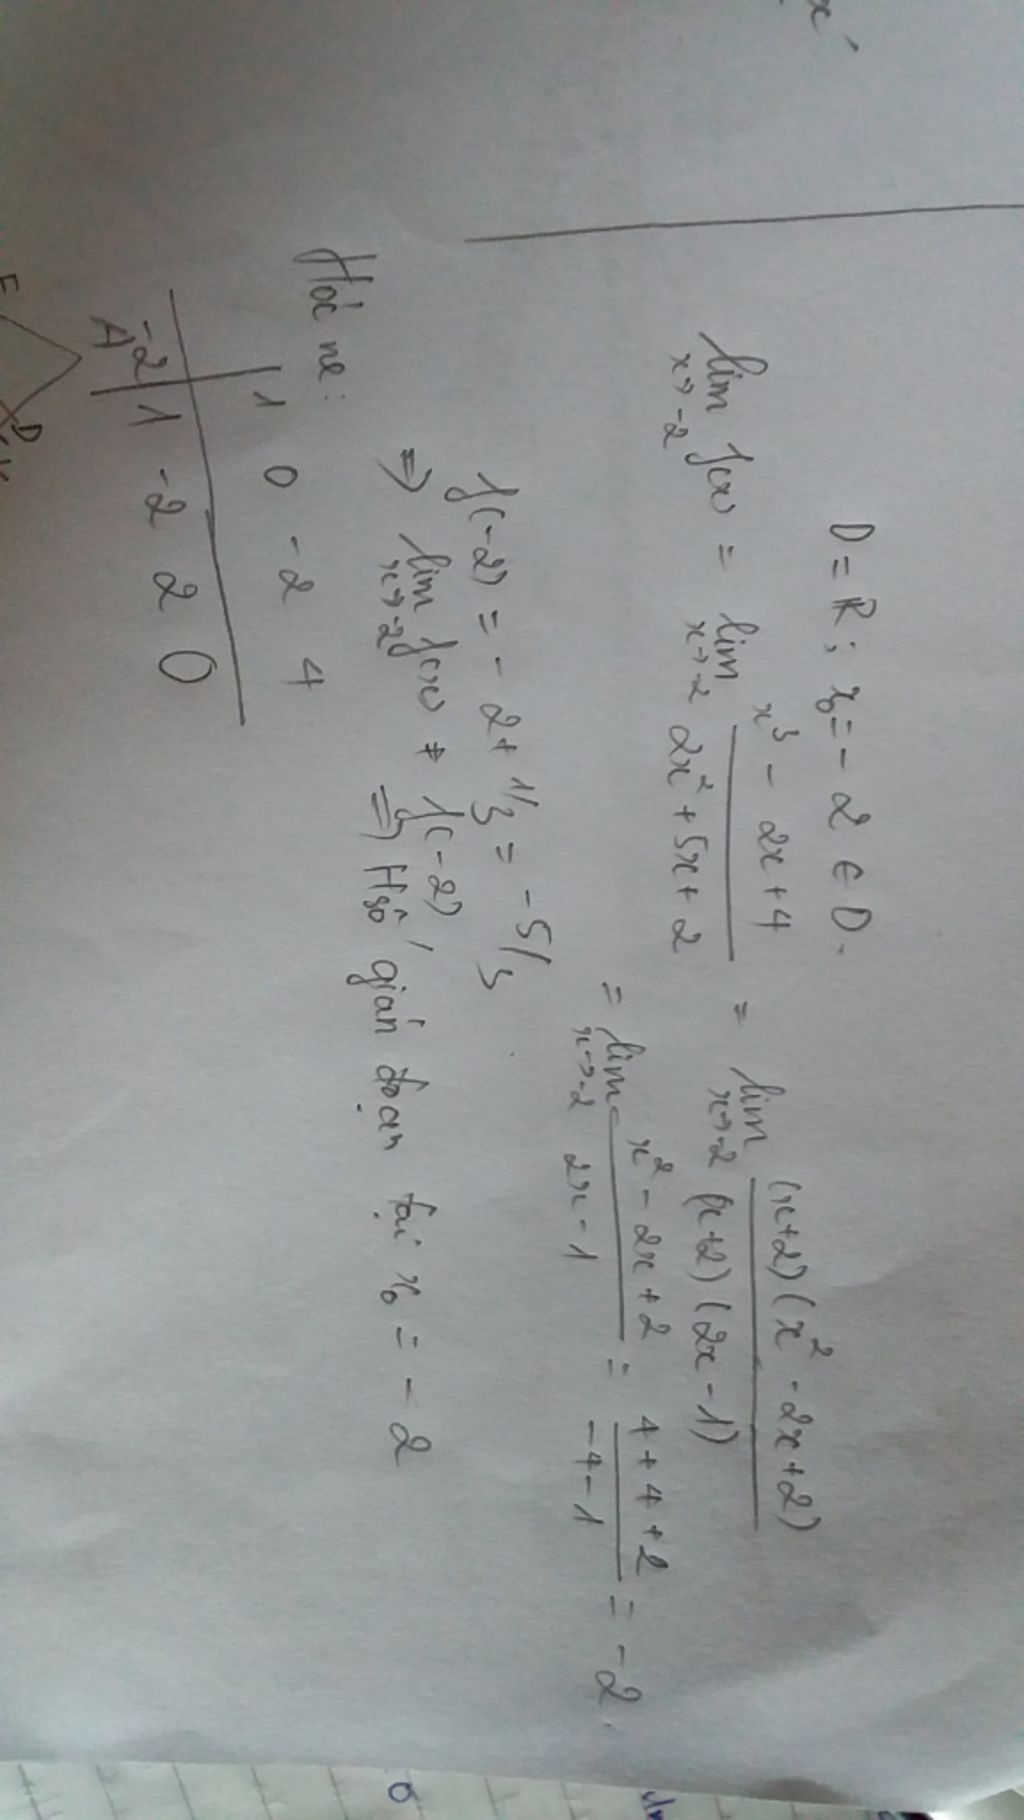 D = R ; x₀ = - 2 ∈ D.
lim x→-2 f(x) = lim x→-2 (x³ - 2x + 4)/(2x² + 5x + 2) = lim x→-2 ((x+2)(x² - 2x + 2))/((x+2)(2x - 1))
= lim x→-2 (x² - 2x + 2)/(2x - 1) = (4 + 4 + 2)/(-4 - 1) = -2.
f(-2) = - 2 + 1/3 = -5/3
⇒ lim x→-2 f(x) ≠ f(-2)
⇒ Hsố gián đoạn tại x₀ = - 2
Hoóc ne:
1 0 -2 4
-2 1 -2 2 0
A
D